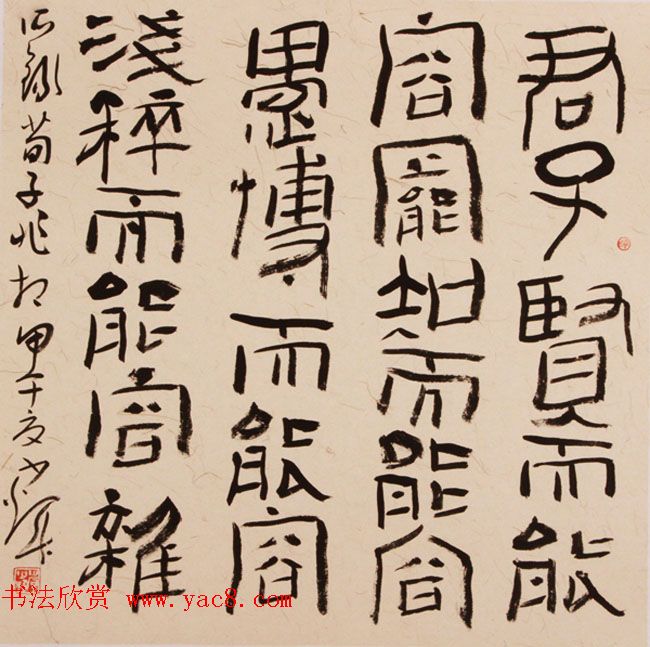 君子賢而能
容罷知而能容
愚博而能容
淺稡而能容雜
节錄荀子非相甲午夏
书法欣赏 www.yac8.com